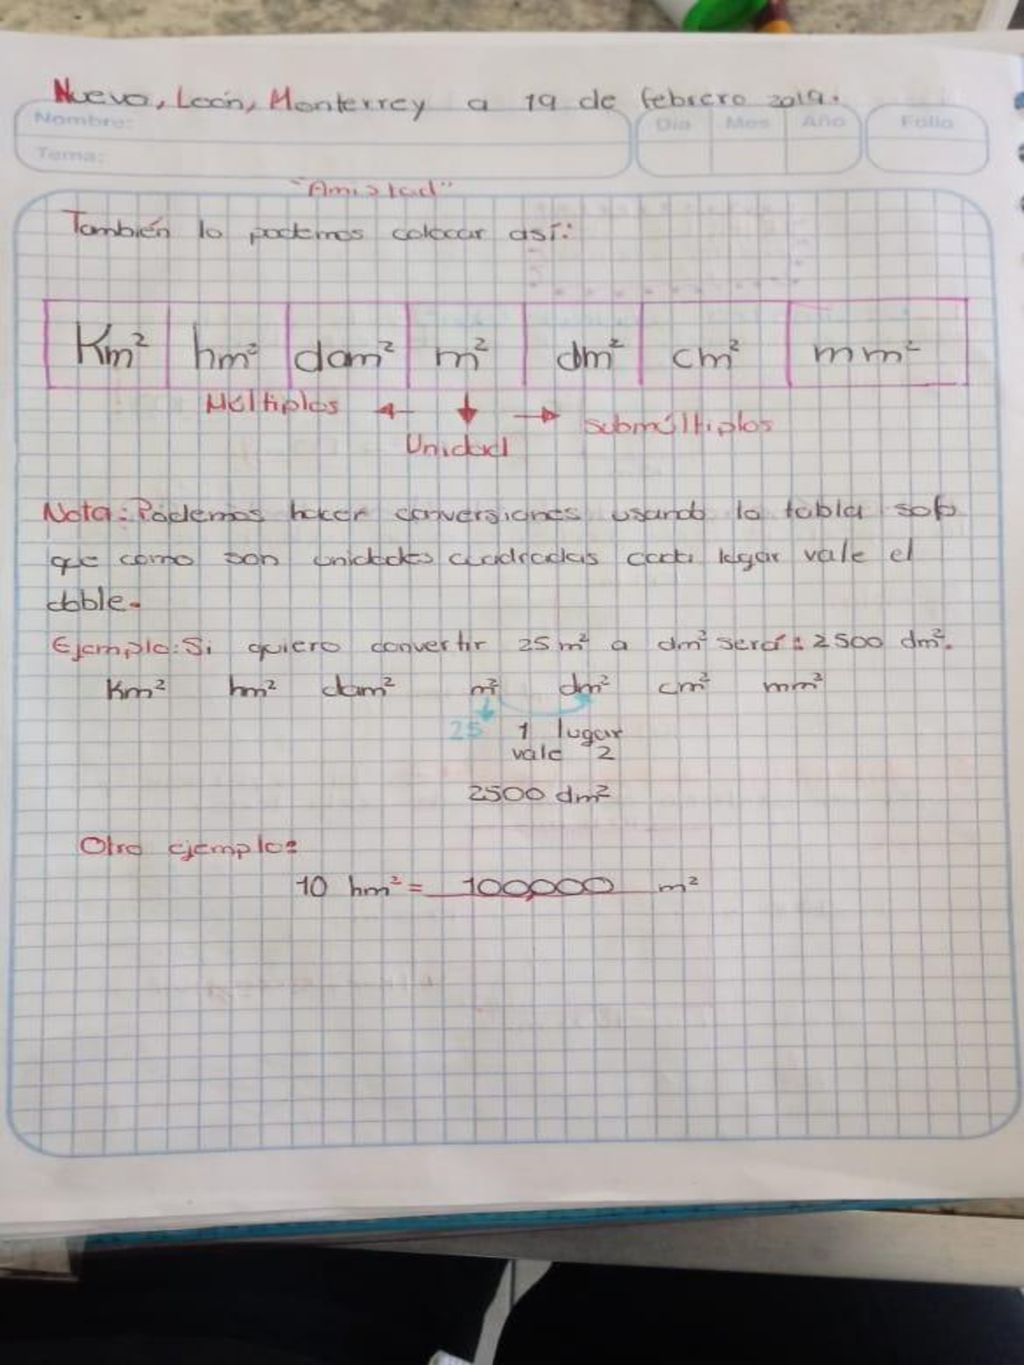 Nuevo, León, Monterrey a 19 de febrero 2019.
Nombre:
Día Mes Año Folio
Tema:
"Amistad"
También lo podemos colocar así:
Km² hm² dam² m² dm² cm² mm²
Múltiplos ← ↓ → submúltiplos
Unidad
Nota: Podemos hacer conversiones usando la tabla solo
que como son unidades cuadradas cada lugar vale el
doble.
Ejemplo: Si quiero convertir 25 m² a dm² será: 2500 dm².
Km² hm² dam² m² dm² cm² mm²
25 1 lugar
vale 2
2500 dm²
Otro ejemplo:
10 hm² = 100,000 m²